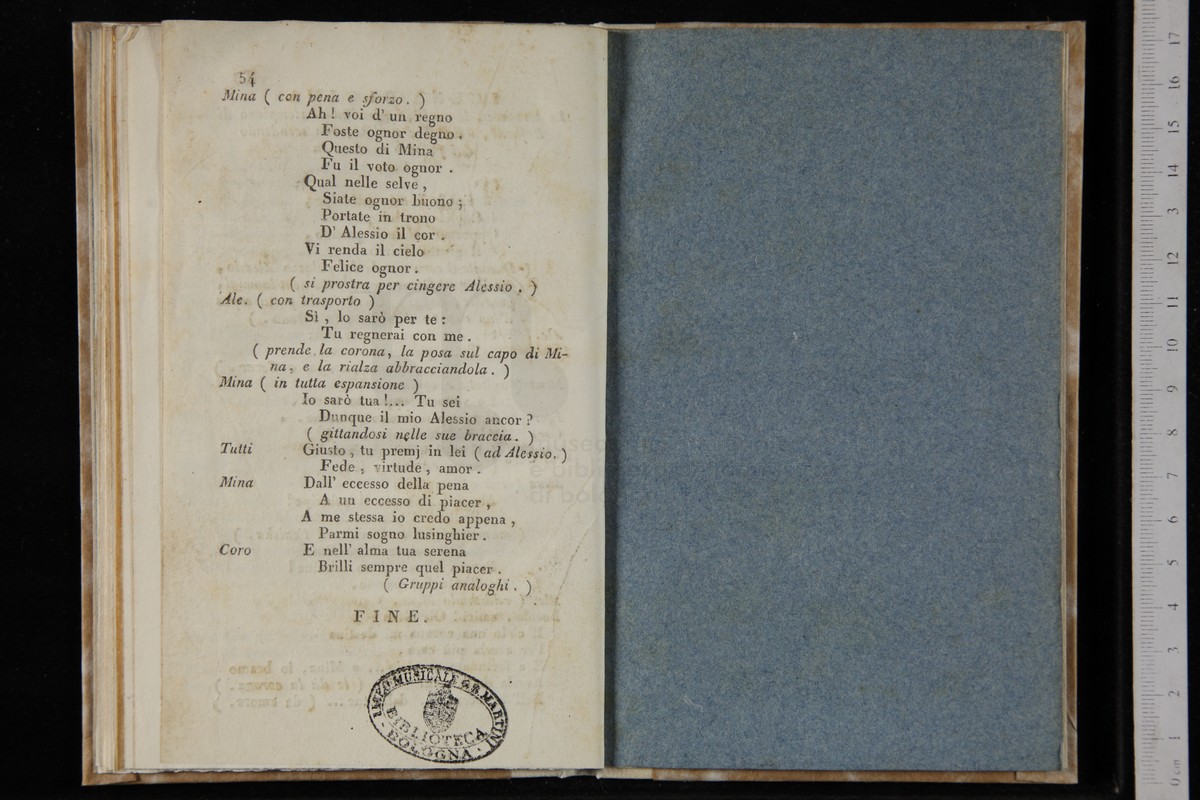 54
Mina ( con pena e sforzo. )
Ah! voi d' un regno
Foste ognor degno.
Questo di Mina
Fu il voto ognor.
Qual nelle selve,
Siate ognor buono;
Portate in trono
D' Alessio il cor.
Vi renda il cielo
Felice ognor.
( si prostra per cingere Alessio. )
Ale. ( con trasporto )
Sì, lo sarò per te:
Tu regnerai con me.
( prende la corona, la posa sul capo di Mi-
na, e la rialza abbracciandola. )
Mina ( in tutta espansione )
Io sarò tua!... Tu sei
Dunque il mio Alessio ancor?
( gittandosi nelle sue braccia. )
Tutti Giusto, tu premj in lei ( ad Alessio. )
Fede, virtude, amor.
Mina Dall' eccesso della pena
A un eccesso di piacer,
A me stessa io credo appena,
Parmi sogno lusinghier.
Coro E nell' alma tua serena
Brilli sempre quel piacer.
( Gruppi analoghi. )
FINE.
LICEO MUSICALE G.B. MARTINI
BIBLIOTECA
BOLOGNA
0 cm 1 2 3 4 5 6 7 8 9 10 11 12 13 14 15 16 17